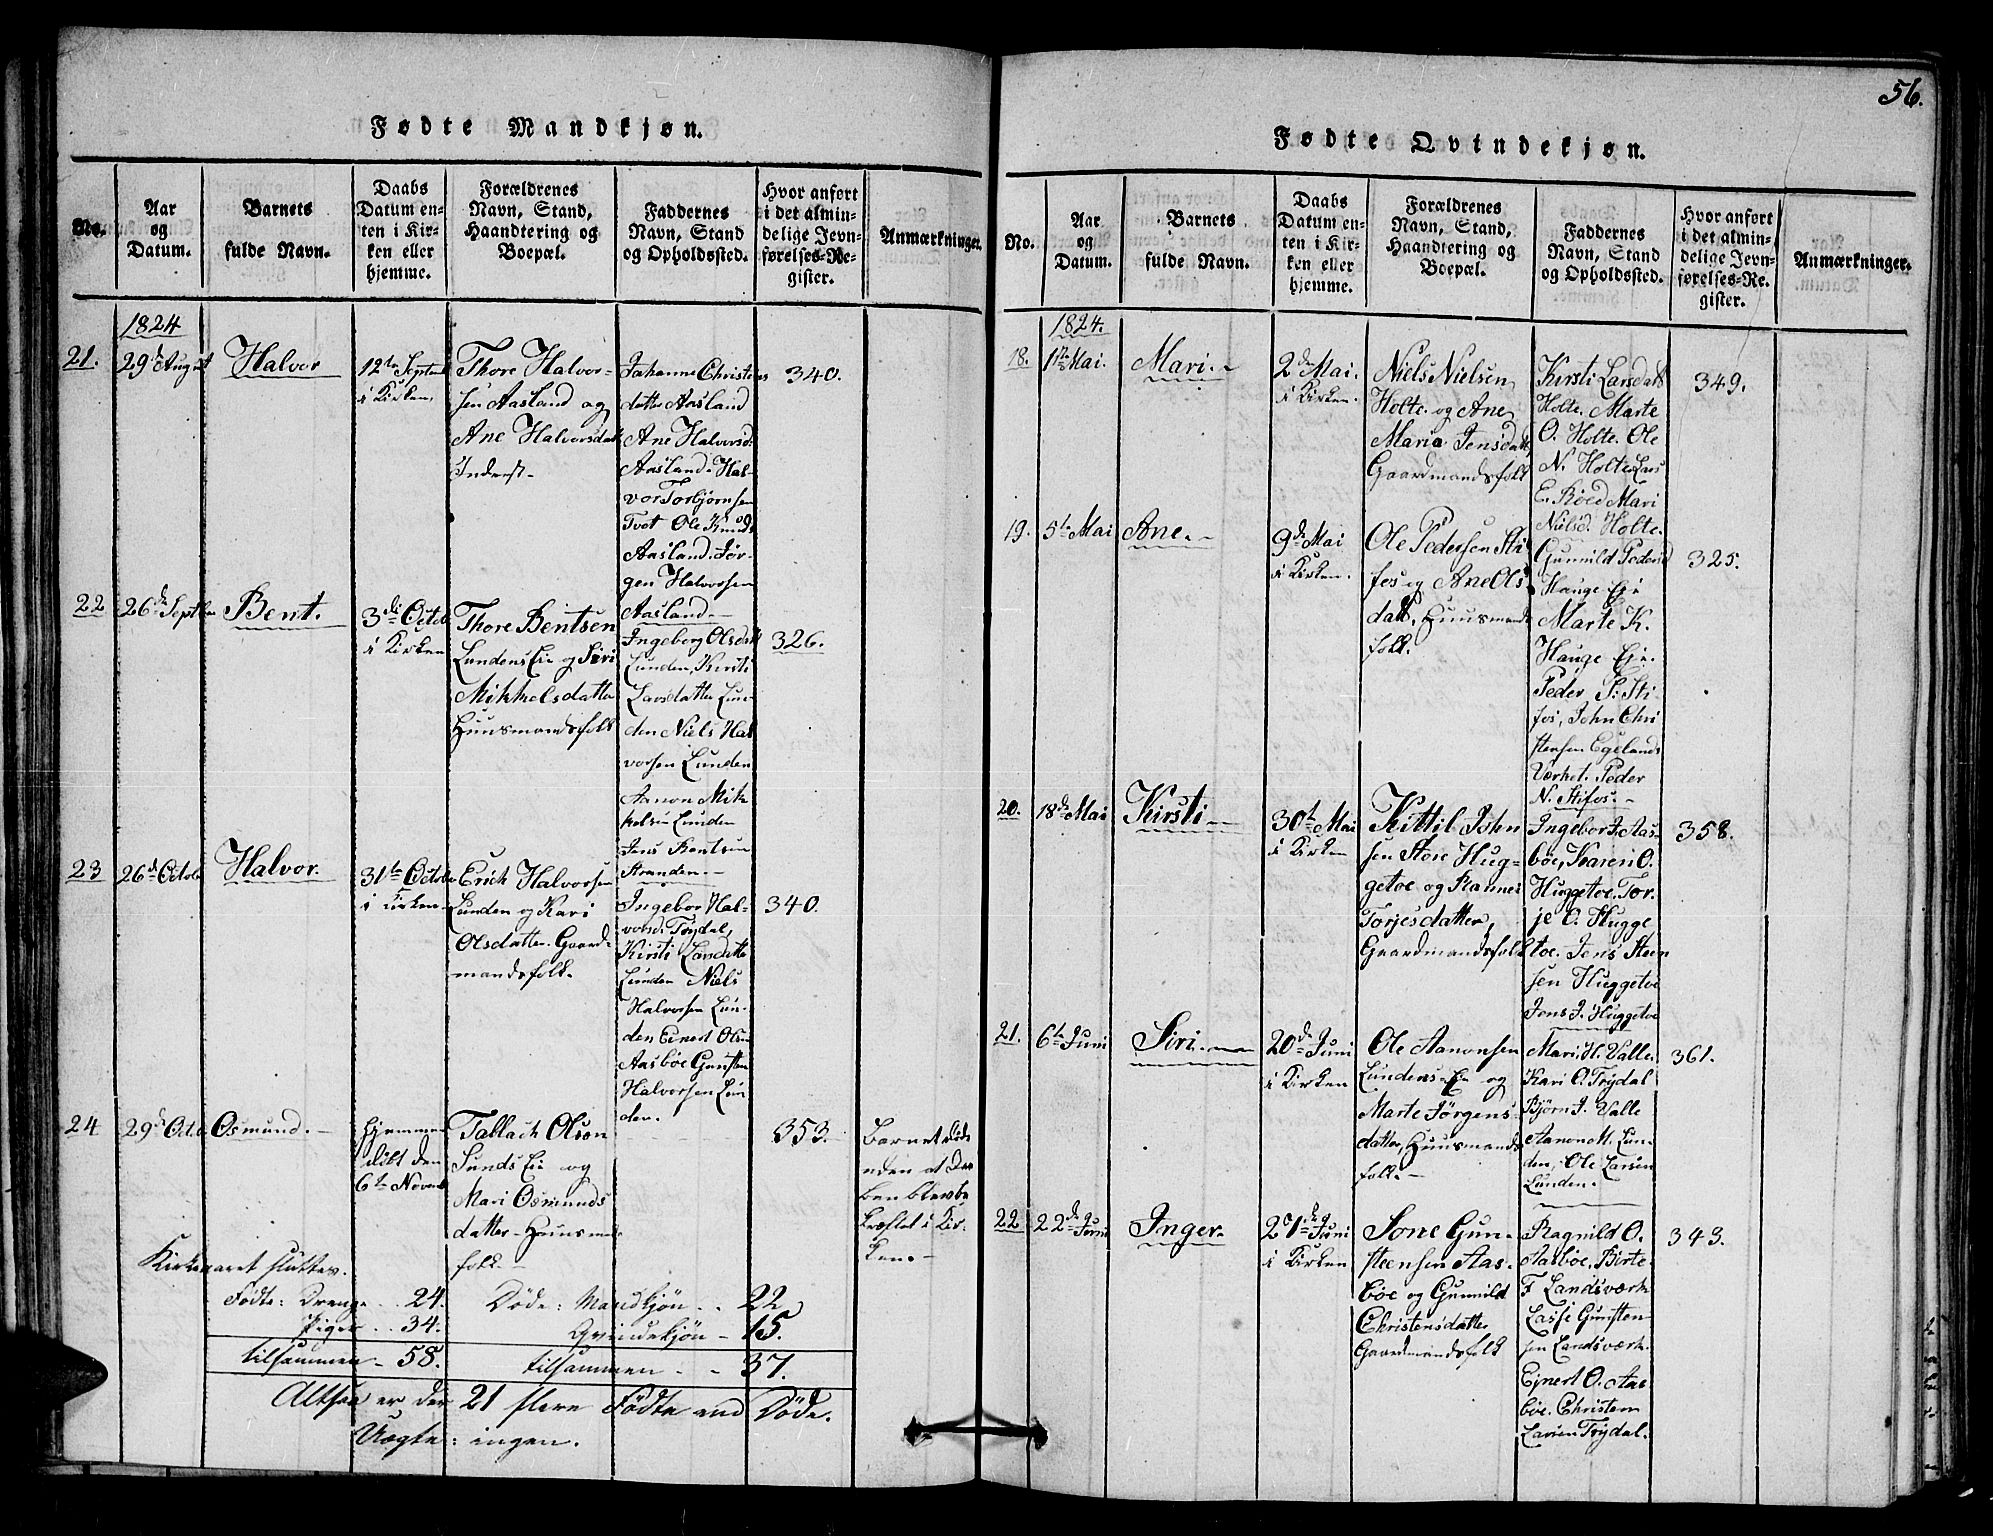 56.
Fødte Mandkjøn.
No.
Aar
og
Datum.
Barnets
fulde Navn.
Daabs
Datum en-
ten i Kir-
ken eller
hjemme.
Forældrenes
Navn, Stand,
Haandtering og
Boepæl.
Faddernes
Navn, Stand
og Opholdssted.
Hvor anført
i det almin-
delige Jevn-
førelses-Re-
gister.
Anmærkninger.
1824
21.
29de August
Halvor
12te Septemb
i Kirken.
Thore Halvor-
sen Aasland og
Ane Halvorsdatt
Inderst.
Johanne Christens
datter Aasland
Ane Halvorsd.
Aasland. Hal-
vor Torbjørnsen
Tvet Ole Knuds
Aasland. Jør-
gen Halvorsen
Aasland.
340.
22
26de Septbr
Bent.
3die Octob
i Kirken
Thore Bentsen
Lundens Eie og Siri
Mikkelsdatter
Huusmandsfolk
Ingeborg Olsdatt
Lunden, Kirsti
Larsdatter Lun-
den Niels Hal
vorsen Lunden
Aanon Mik
kelsen Lunden
Jens Bentsen
Stranden.
326.
23
26de Octob
Halvor.
31te Octob
i Kirken
Erich Halvorsen
Lunden og Kari
Olsdatter. Gaard-
mandsfolk.
Ingebor Hal-
vorsd. Trydal,
Kirsti Larsdatter
Lunden Niels
Halvorsen Lun-
den Einert Ols
Aasbøe Gunsten
Halvorsen Lun
den.
340.
24
29de Octob
Osmund.
hjemme
døbt den
6te Novemb
Tallach Olson
Sunds Eie og
Mari Osmunds
datter Huusmands
folk.
353.
Barnet døde
uden at Daa
ben blev be
kræftet i Kir-
ken.
Kirkeaaret sluttes.
Fødte: Drenge 24.
Piger 34.
tilsammen 58.
Døde: Mandkjøn 22
Qvindekjøn 15.
tilsammen 37.
Altsaa er der 21 flere Fødte end Døde.
Uægte: ingen.
Fødte Qvindekjøn.
No.
Aar
og
Datum.
Barnets
fulde Navn.
Daabs
Datum en-
ten i Kir-
ken eller
hjemme.
Forældrenes
Navn, Stand,
Haandtering og
Boepæl.
Faddernes
Navn, Stand
og Opholdssted.
Hvor anført
i det almin-
delige Jevn-
førelses-Re-
gister.
Anmærkninger.
1824.
18.
1ste Mai.
Mari.
2de Mai.
i Kirken.
Niels Nielsen
Holte og Ane
Maria Jensdatt,
Gaardmandsfolk
Kirsti Larsdatt
Holte. Marte
O. Holte. Ole
N. Holte Lars
E. Røed Mari
Nielsd. Holte.
349.
19.
5te Mai
Ane.
9de Mai
i Kirken.
Ole Pedersen Sti
fos og Ane Ols
datt, Huusmands
folk.
Gunnild Peders
Hauge Eje
Marte K.
Hauge Eje.
Peder P. Sti
fos, John Chri
stensen Egelands
Værket. Peder
N. Stifos.
325.
20.
18de Mai
Kirsti
30te Mai
i Kirken
Kittil Josten
sen Store Hug-
getoe og Rannei
Torjesdatter,
Gaardmandsfolk
Ingebor J. Aas-
bøe, Karen O.
Huggetoe, Tor-
je E. Hugge
toe. Jens Steen
sen Huggetoe
Jens J. Huggetoe
358.
21.
6te Juni
Siri.
20de Juni
i Kirken
Ole Aanonsen
Lundens Eie og
Marte Jørgens-
datter, Huusmands
folk.
Mari H. Valle.
Kari O. Trydal
Bjørn J. Valle
Aanon M. Lun-
den, Ole Larsen
Lunden.
361.
22
22de Juni
Inger.
27de Juni
i Kirken
Sone Gun-
steensen Aas-
bøe og Gunnild
Christensdatter
Gaardmandsfolk
Ragnild O.
Aasbøe, Birte
F Landsværk
Lasse Gunsten
sen Landsværk.
Ejnert O. Aas
bøe. Christen
Larsen Trydal.
343.